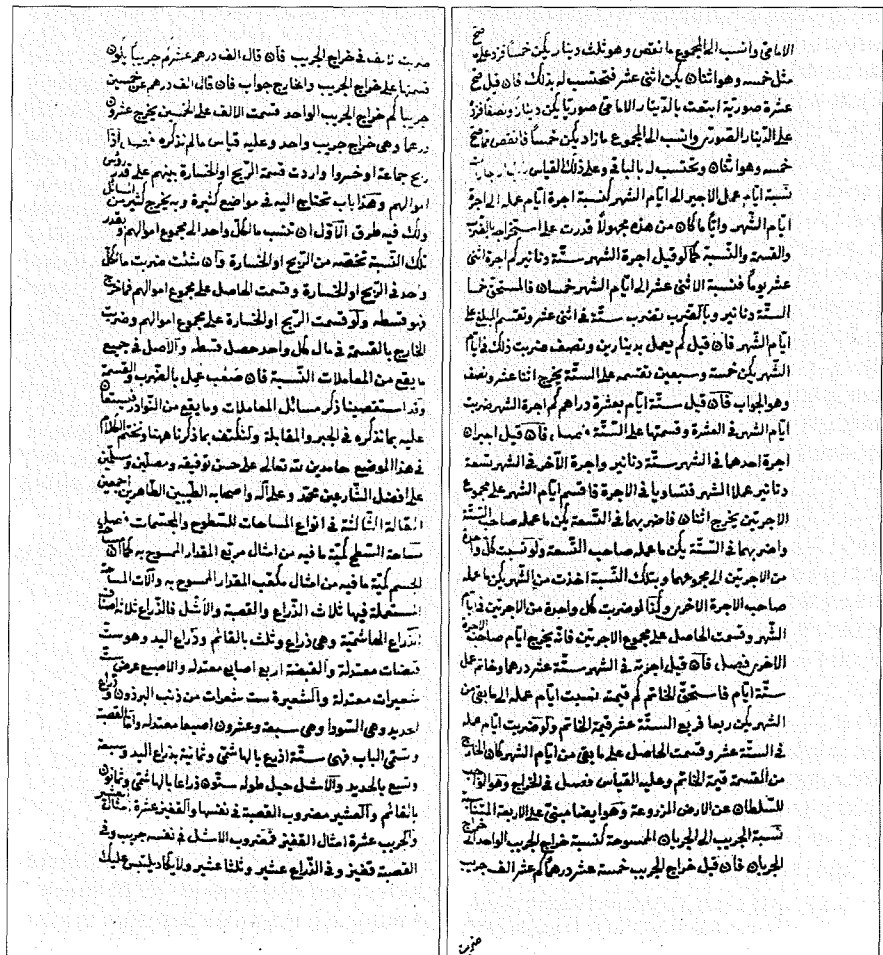 الامامى وانسب الى المجموع ما نقص وهو ثلث دينار يكن خمسا فزد على
مثل خمسه وهو اثنان يكن اثنى عشر فيحتسب له بذلك فان قيل
عشرة صورية ابتعت بالدينار الامامى صوريا يكن دينار ونصفا فزد
على الدينار الصورى وانسب الى المجموع ما زاد يكن خمسا فانقص
خمسه وهو اثنان ويحتسب له بالباقى وعلى ذلك القياس
نسبة ايام عمل الاجير الى ايام الشهر كنسبة اجرة ايام عمله الى اجرة
ايام الشهر وايا ما كان من هذه مجهولا قدرت على استخراجه بالضرب
والقسمة والنسبة كما لو قيل اجرة الشهر ستة دنانير كم اجرة اثنى
عشر يوما فنسبة الاثنى عشر الى ايام الشهر خمسان فالمستحق خمسا
الستة دنانير وبالضرب تضرب ستة فى اثنى عشر وتقسم المبلغ على
ايام الشهر فان قيل كم يعمل بدينارين ونصف ضربت ذلك فى ايام
الشهر يكن خمسة وسبعين تقسمه على الستة يخرج اثنا عشر ونصف
وهو الجواب فان قيل ستة ايام بعشرة دراهم كم اجرة الشهر ضربت
ايام الشهر فى العشرة وقسمتها على الستة فصل فان قيل اجيران
اجرة احدهما فى الشهر ستة دنانير واجرة الآخر فى الشهر تسعة
دنانير عملا الشهر فتساويا فى الاجرة فاقسم ايام الشهر على مجموع
الاجرتين يخرج اثنان فاضربهما فى التسعة يكن ما عمله صاحب الستة
واضربهما فى الستة يكن ما عمله صاحب التسعة ولو نسبت كل واحدة
من الاجرتين الى مجموعهما وبتلك النسبة اخذت من الشهر يكن ما عمله
صاحب الاجرة الاخرى وكذا لو ضربت كل واحدة من الاجرتين فى ايام
الشهر وقسمت الحاصل على مجموع الاجرتين فانه يخرج ايام صاحب الاجرة
الاخرى فصل فان قيل اجرته فى الشهر ستة عشر درهما وخاتم عمل
ستة ايام فاستحق الخاتم كم قيمته نسبت ايام عمله الى ما بقى من
الشهر يكن ربعا فربع الستة عشر قيمة الخاتم ولو ضربت ايام عمله
فى الستة عشر وقسمت الحاصل على ما بقى من ايام الشهر كان الخارج
من القسمة قيمة الخاتم وعليه القياس فصل فى الخراج وهو
للسلطان عن الارض المزروعة وهو ايضا مبنى على الاربعة المتناسبة
نسبة الجريب الى الجربان الممسوحة كنسبة خراج الجريب الواحد الى خراج
الجربان فان قيل خراج الجريب خمسة عشر درهما كم عشر الف جريب
ضربت
ضربت فى خراج الجريب فان قال الف درهم عشر كم جريبا يكون
قسمتها على خراج الجريب والخارج جواب فان قال الف درهم عن خمسين
جريبا كم خراج الجريب الواحد قسمت الالف على الخمسين يخرج عشرون
درهما وهى خراج جريب واحد وعليه قياس ما لم نذكره فصل اذا
ربح جماعة او خسروا واردت قسمة الربح او الخسارة بينهم على قدر رؤس
اموالهم وهذا باب تحتاج اليه فى مواضع كثيرة وبه يخرج كثير من المسائل
ولك فيه طرق الاول ان تنسب ما لكل واحد الى مجموع اموالهم وبقدر
تلك النسبة تخصه من الربح او الخسارة وان شئت ضربت ما لكل
واحد فى الربح او الخسارة وقسمت الحاصل على مجموع اموالهم فما خرج
فهو قسطه ولو قسمت الربح او الخسارة على مجموع اموالهم وضربت
الخارج بالقسمة فى مال كل واحد حصل قسطه والاصل فى جميع
ما يقع من المعاملات النسبة فان صعب عمل بالضرب والقسمة
وقد استقصينا ذكر مسائل المعاملات وما يقع من النوادر فيستعان
عليه بما نذكره فى الجبر والمقابلة ولنكتف بما ذكرناه هنا ونختم الكلام
فى هذا الموضع حامدين لله تعالى على حسن توفيقه ومصلين ومسلمين
على افضل الشارعين محمد وعلى آله واصحابه الطيبين الطاهرين اجمعين
المقالة الثالثة فى انواع المساحات للسطوح والمجسمات فصل
مساحة السطح كمية ما فيه من امثال مربع المقدار الممسوح به كما ان مساحة
الجسم كمية ما فيه من امثال مكعب المقدار الممسوح به وآلات المساحة
المستعملة فيها ثلاث الذراع والقصبة والاشل فالذراع ثلاثة اصناف
الذراع الهاشمية وهى ذراع وثلث بالقائم وذراع اليد وهو ست
قبضات معتدلة والقبضة اربع اصابع معتدلة والاصبع عرض ست
شعيرات معتدلة والشعيرة ست شعرات من ذنب البرذون وذراع
الحديد وهى السودا وهى سبعة وعشرون اصبعا معتدلة واما القصبة
وتسمى الباب فهى ستة اذرع بالهاشمى وثمانية بذراع اليد وسبعة
وتسع بالحديد والاشل حبل طوله ستون ذراعا بالهاشمى وثمانون
بالقائم والعشير مضروب القصبة فى نفسها والقفيز عشرة امثال العشير
والجريب عشرة امثال القفيز فمضروب الاشل فى نفسه جريب وفى
القصبة قفيز وفى الذراع عشير وثلثا عشير ولا يكاد يلتبس عليك